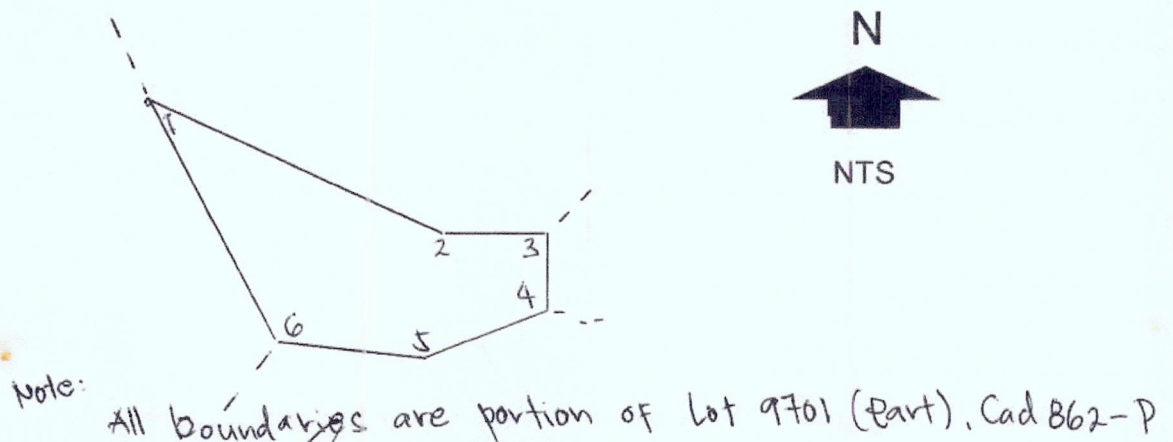 N
NTS
1
2
3
4
5
6
Note:
All boundaries are portion of Lot 9701 (part), Cad 862-P